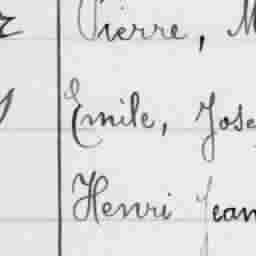 Pierre, M
Emile, Jose
Henri Jean